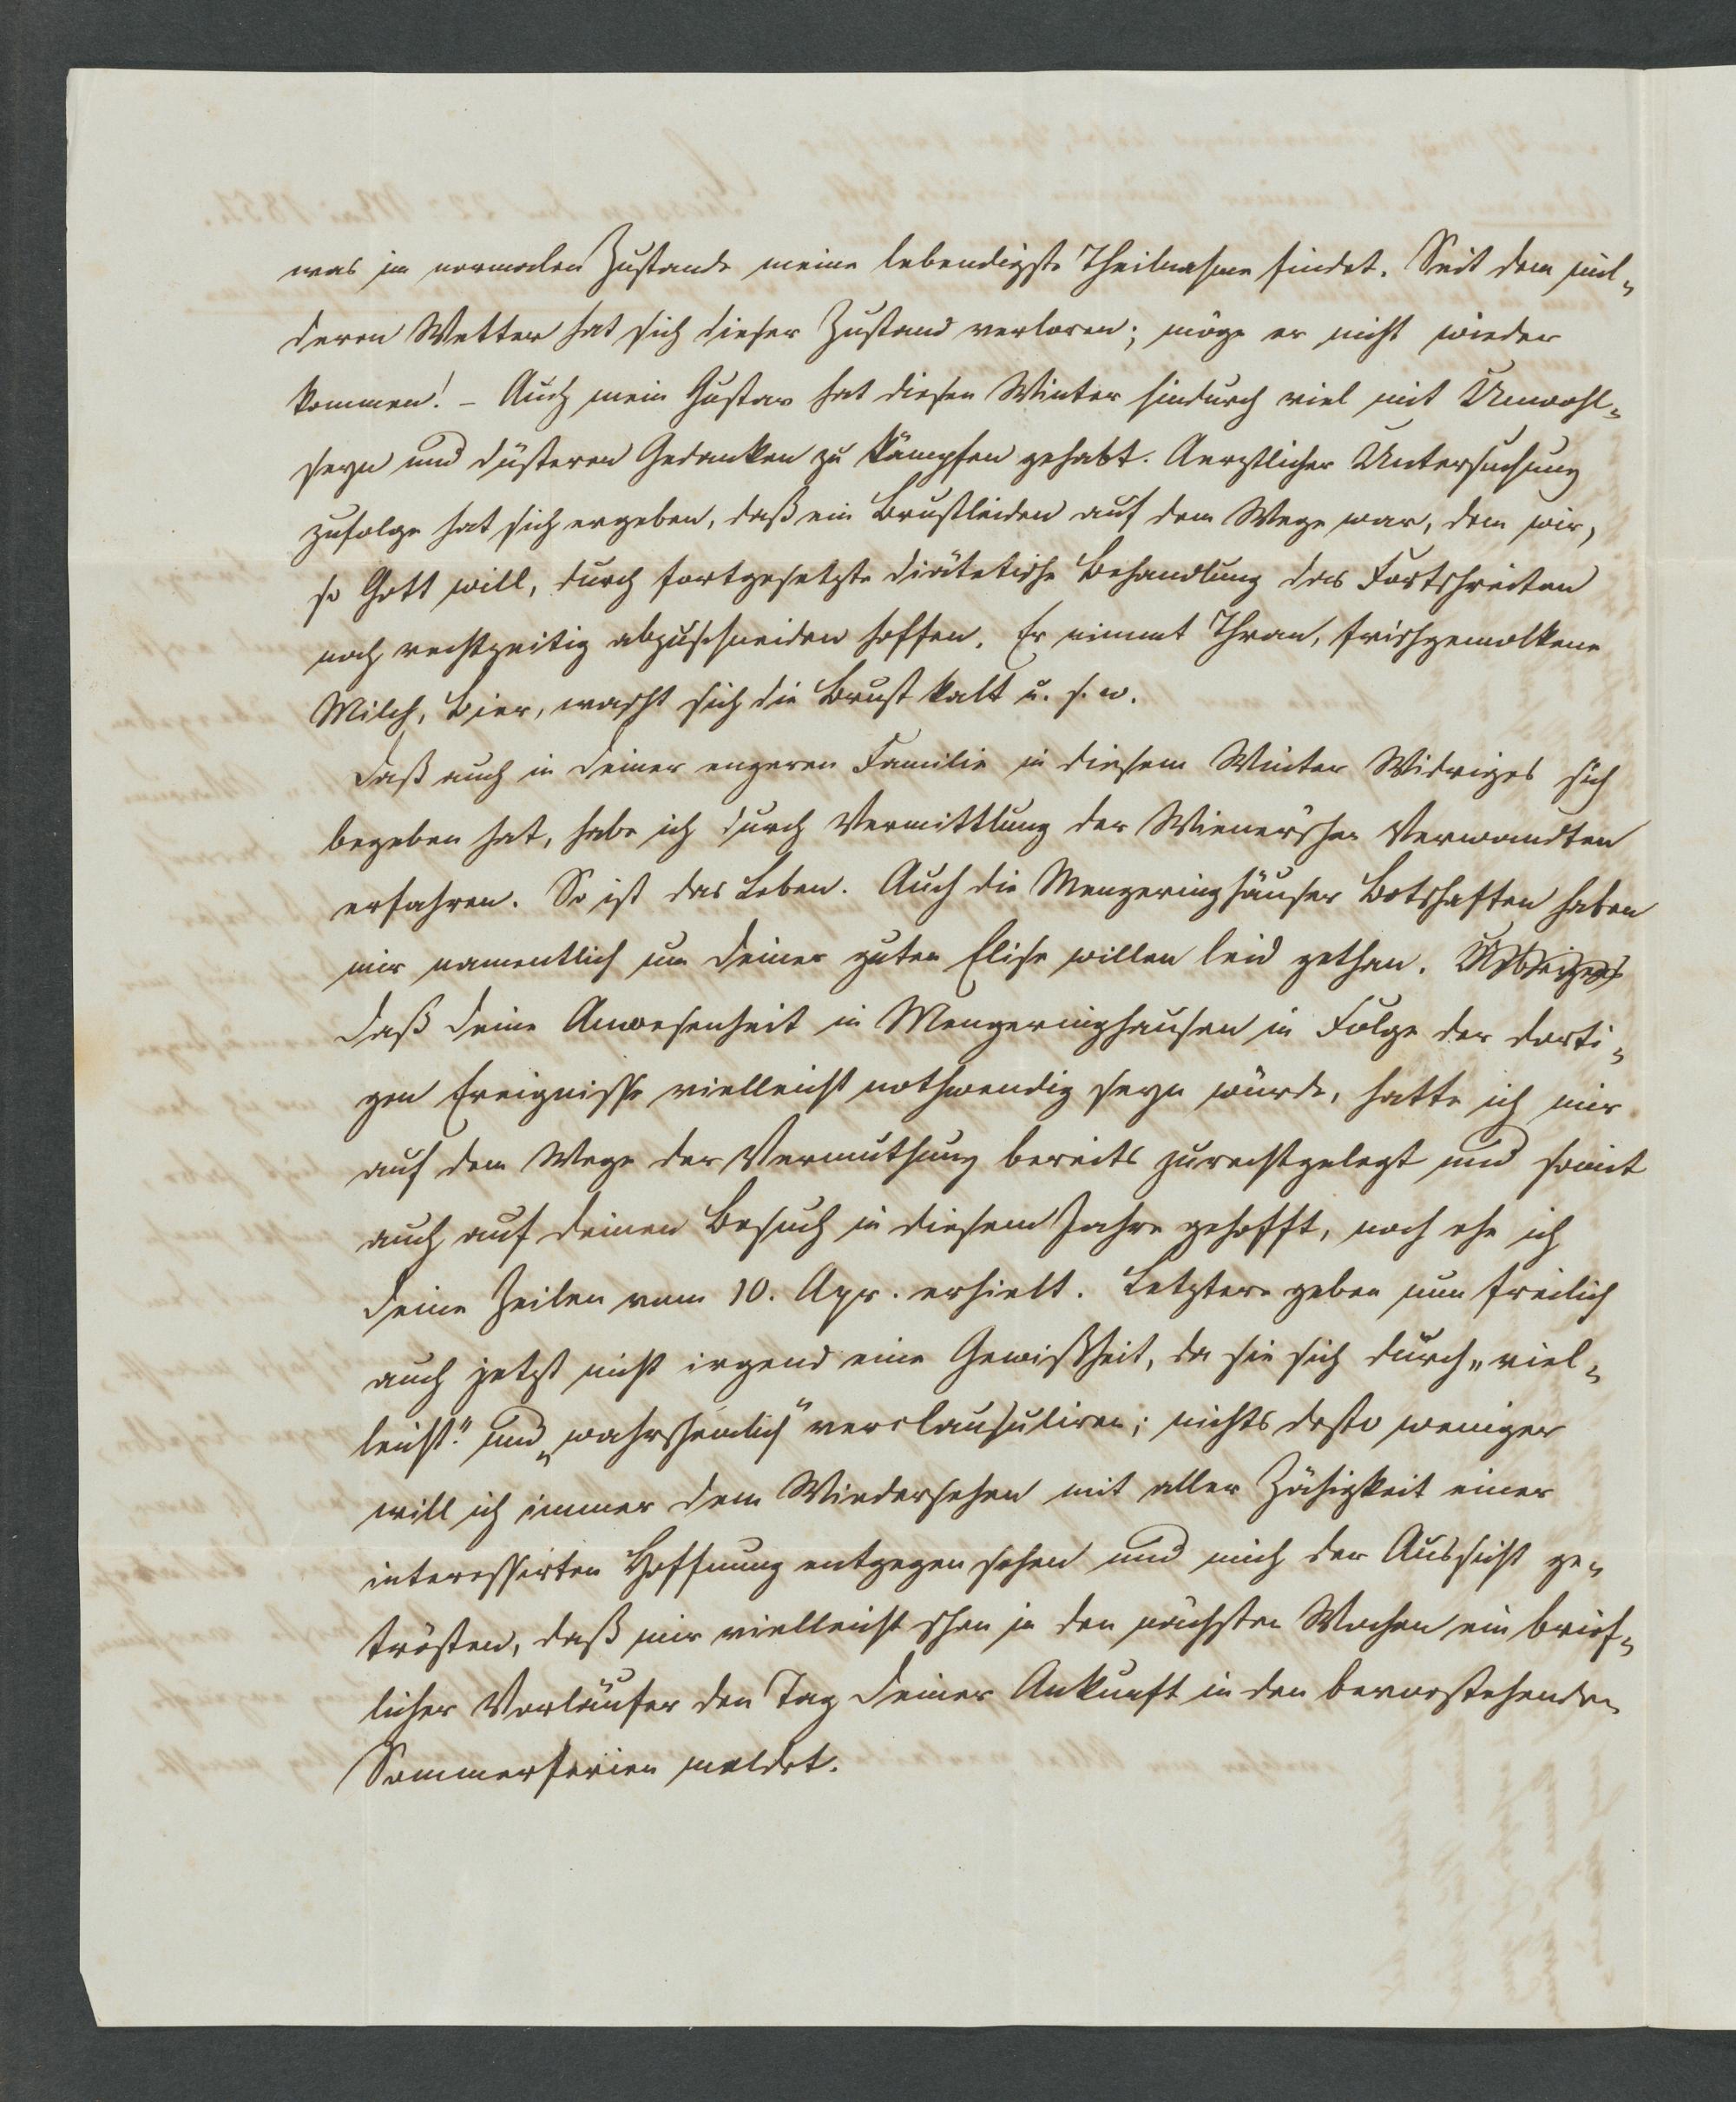 was im normalen Zustande meine lebendigste Theilnahme findet. Seit dem mil-
deren Wetter hat sich dieser Zustand verloren; möge er nicht wieder
kommen! – Auch mein Gustav hat diesen Winter hindurch viel mit Unwohl-
seyn und düsteren Gedanken zu kämpfen gehabt. Aerztlicher Untersuchung
zufolge hat sich ergeben, daß ein Brustleiden auf dem Wege war, dem wir,
so Gott will, durch fortgesetzte diätetische Behandlung das Fortschreiten
noch rechtzeitig abzuschneiden hoffen. Er nimmt Thran, frischgemolkene
Milch, Bier, wascht sich die Brust kalt u. s. w.
Daß auch in Deiner engeren Familie in diesem Winter Widriges sich
begeben hat, habe ich durch Vermittlung der Wiener'schen Verwandten
erfahren. So ist das Leben. Auch die Mengeringhäuser Botschaften haben
mir namentlich um Deiner guten Elise willen leid gethan. Uebrigens
Daß Deine Anwesenheit in Mengeringhausen in Folge der dorti-
gen Ereignisse vielleicht nothwendig seyn würde, hatte ich mir
auf dem Wege der Vermuthung bereits zurechtgelegt und somit
auch auf Deinen Besuch in diesem Jahre gehofft, noch ehe ich
Deine Zeilen vom 10. Apr. erhielt. Letztere geben nun freilich
auch jetzt nicht irgend eine Gewißheit, da sie sich durch „viel-
leicht“ und „wahrscheinlich“ verclausuliren; nichts desto weniger
will ich immer dem Wiedersehen mit aller Zähigkeit einer
interessirten Hoffnung entgegen sehen und mich der Aussicht ge-
trösten, daß mir vielleicht schon in den nächsten Wochen ein brief-
licher Vorläufer den Tag Deiner Ankunft in den bevorstehenden
Sommerferien meldet.